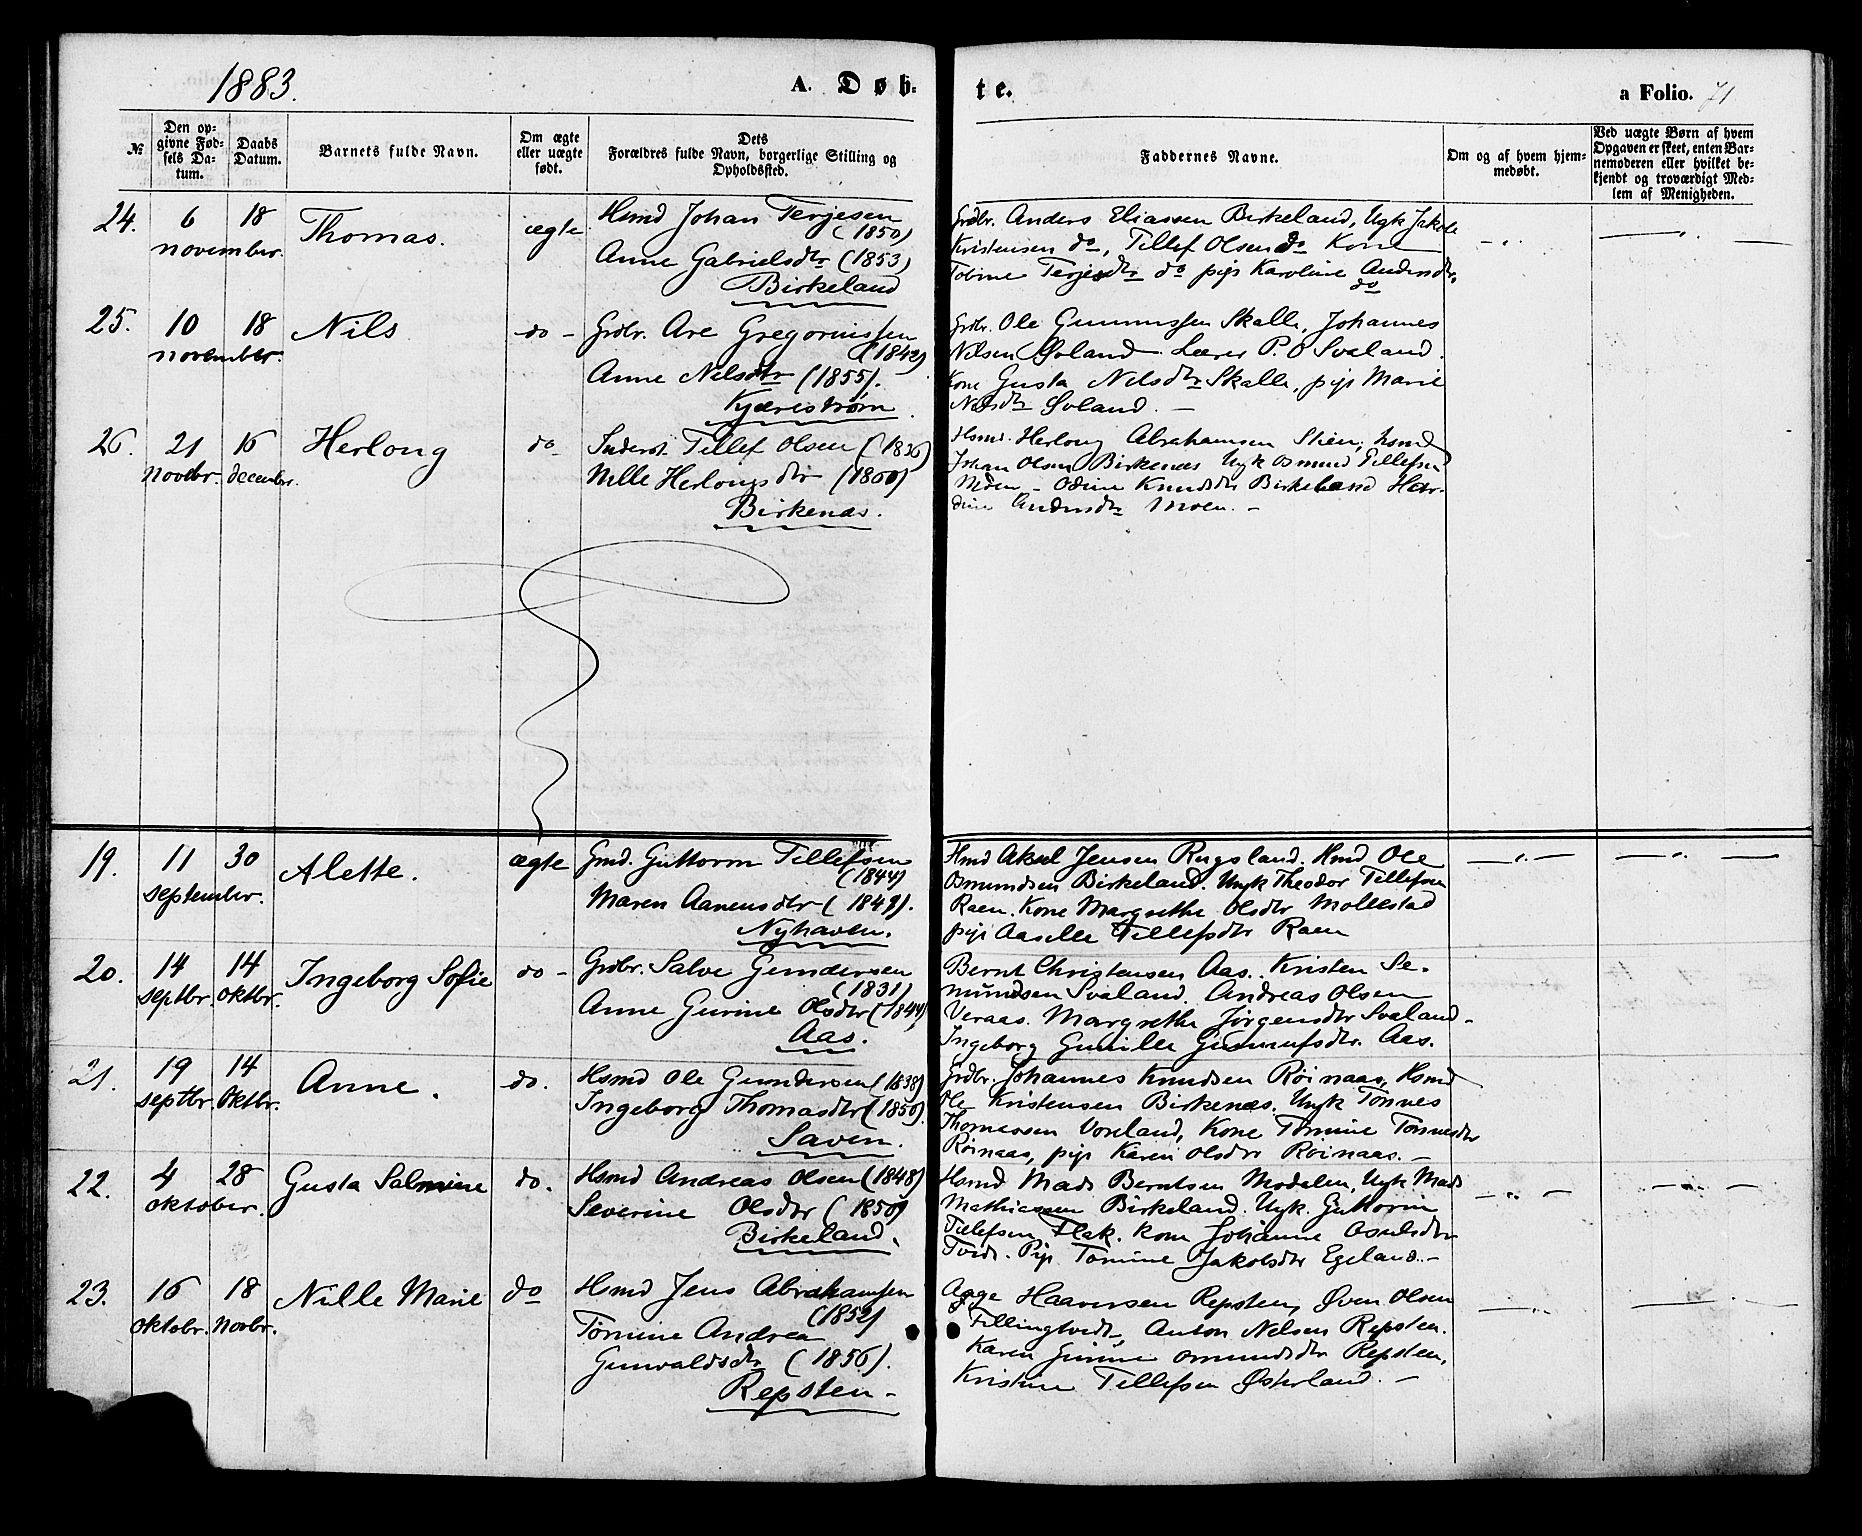 1883.
A. Døb-
te.
a Folio. 71
№
Den op-
givne Fød-
sels Da-
tum.
Daabs
Datum.
Barnets fulde Navn.
Om ægte
eller uægte
født.
Dets
Forældres fulde Navn, borgerlige Stilling og
Opholdssted.
Faddernes Navne.
Om og af hvem hjem-
medøbt.
Ved uægte Børn af hvem
Opgaven er skeet, enten Bar-
nemoderen eller hvilket be-
kjendt og troværdigt Med-
lem af Menigheden.
24.
6
18
november.
Thomas.
ægte
Hsmd Johan Terjesen
(1850)
Anne Gabrielsdtr (1853)
Birkeland
Grdbr. Anders Eliassen Birkeland, Ugk Jakob
Kristensen do, Tellef Olsen do Kone
Tobine Terjesdtr do pige Karoline Andersdtr.
do
25.
10
18
november.
Nils
do -
Grdbr. Are Gregoriussen
(1842)
Anne Nilsdtr (1855).
Kjærestrøm.
Grdbr. Ole Gunnussen Skalle, Johannes
Nilsen Øvland. Lærer P. O Svaland.
Kone Gusta Nilsdtr Skalle, pige Marie
Nilsdtr Øvland. -
26.
21
16
Novbr.
december.
Herlong
do
Inderst. Tellef Olsen (1836)
Nille Herlongsdtr
Birkenæs.
Hsmd. Herlong Abrahamsen Stien, hsmd
Johan Olsen Birkenæs Ugk Osmund Tellefsen
- Odine Knudsdtr Birkeland
Andersdtr Moen. -
19.
11
30
september.
Alette.
ægte
Gmd. Guttorm Tellefsen
(1844)
Maren Aanensdtr (1849).
Nyhaven.
Hmd Aksel Jensen Rugsland. Hmd Ole
Osmundsen Birkeland. Ungk Theodor Tellefsen
Raen. Kone Margrethe Olsdtr Mollestad
pige Aaselle Tellefsdtr Raen
20.
14
14
septbr.
oktbr.
Ingeborg Sofie
do -
Grdbr. Salve Gundersen
(1831)
Anne Gurine Olsdtr (1844)
Aas.
Bernt Christensen Aas. Kristen Se-
mundsen Svaland. Andreas Olsen
Veraas. Margrethe Jørgensdtr Svaland-
Ingeborg Gunille Aas.
21.
19
14
septbr.
Oktbr.
Anne.
do.
Hsmd Ole Gundersen (1838)
Ingeborg Thomasdtr (1850)
Saven.
Grdbr. Johannes Knudsen Røinaas, Hsmd
Ole Kristensen Birkenæs. Ungk Tønnes
Thomassen Voreland, Kone Tomine Tønnesdtr
Røinaas, pige Karen Olsdtr Røinaas. -
22.
4
28
oktober.
Gusta Salmine
do.
Hsmd Andreas Olsen (1848)
Severine Olsdtr (1850)
Birkeland.
Hsmd Mads Berntsen Modalen, Ugk Mads
Mathiassen Birkeland. Ugk. Guttorm
Tellefsen Flak. kone Johanne
Tvedt. Pige Tomine Jakobsdtr Egeland. -
23.
16
18
oktobr.
Novbr.
Nille Marie
do
Hsmd Jens Abrahamsen
(1852)
Tomine Andrea
Gunvaldsdtr (1856).
Repsten -
Aage Haaversen Repsten, Øven Olsen
Fillingtvedt, Anton Nelsen Repsten.
Karen Gurine Omundsdtr Repsten,
Kristine Tellefsen Østerland. -